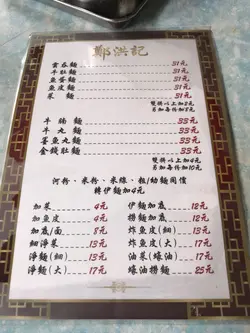 鄭洪記
雲吞麵 31元
牛肚麵 31元
魚蛋麵 31元
魚皮麵 31元
菜麵 31元
雙拼以上加2元
另加每件加5元
牛腩麵 33元
牛丸麵 33元
墨魚丸麵 33元
金錢肚麵 33元
雙拼以上加4元
另加每件加10元
河粉、米粉、米線、粗/幼麵同價
轉伊麵加4元
加菜 4元 伊麵加底 12元
加魚皮 4元 撈麵加底 12元
加底/面 8元 炸魚皮(細) 13元
細淨菜 13元 炸魚皮(大) 17元
淨麵(細) 13元 油菜(撈麵) 17元
淨麵(大) 17元 蠔油撈麵 25元